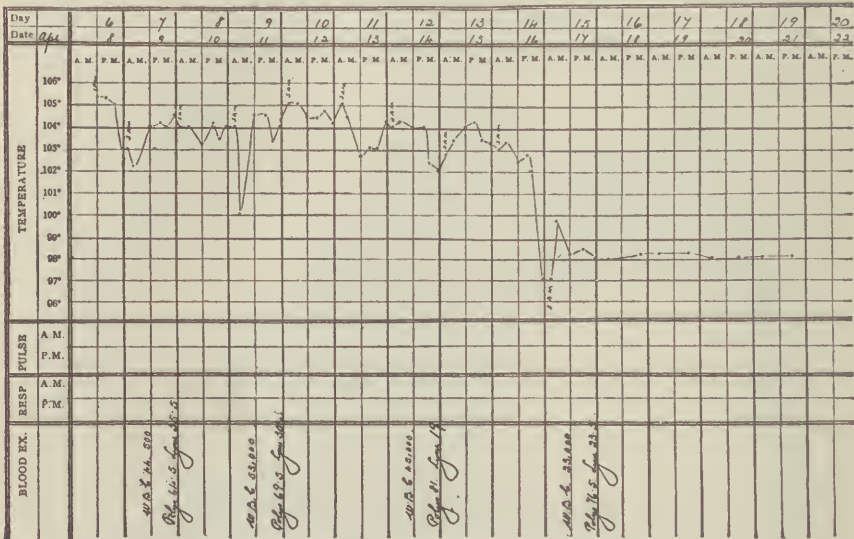 Day 6 7 8 9 10 11 12 13 14 15 16 17 18 19 20
Date Apl 8 9 10 11 12 13 14 15 16 17 18 19 20 21 22
A.M. P.M. A.M. P.M. A.M. P.M. A.M. P.M. A.M. P.M. A.M. P.M. A.M. P.M. A.M. P.M. A.M. P.M. A.M. P.M. A.M. P.M. A.M. P.M. A.M. P.M. A.M. P.M. A.M. P.M.
TEMPERATURE
106°
105°
104°
103°
102°
101°
100°
99°
98°
97°
96°
PULSE
A.M.
P.M.
RESP
A.M.
P.M.
BLOOD EX.
W.B.C. 500
Polys 5 Lym 5
W.B.C. 000
Polys 69.5 Lym
W.B.C. 000
Polys 81. Lym 19
W.B.C. 23,000
Polys 76.5 Lym 23.5